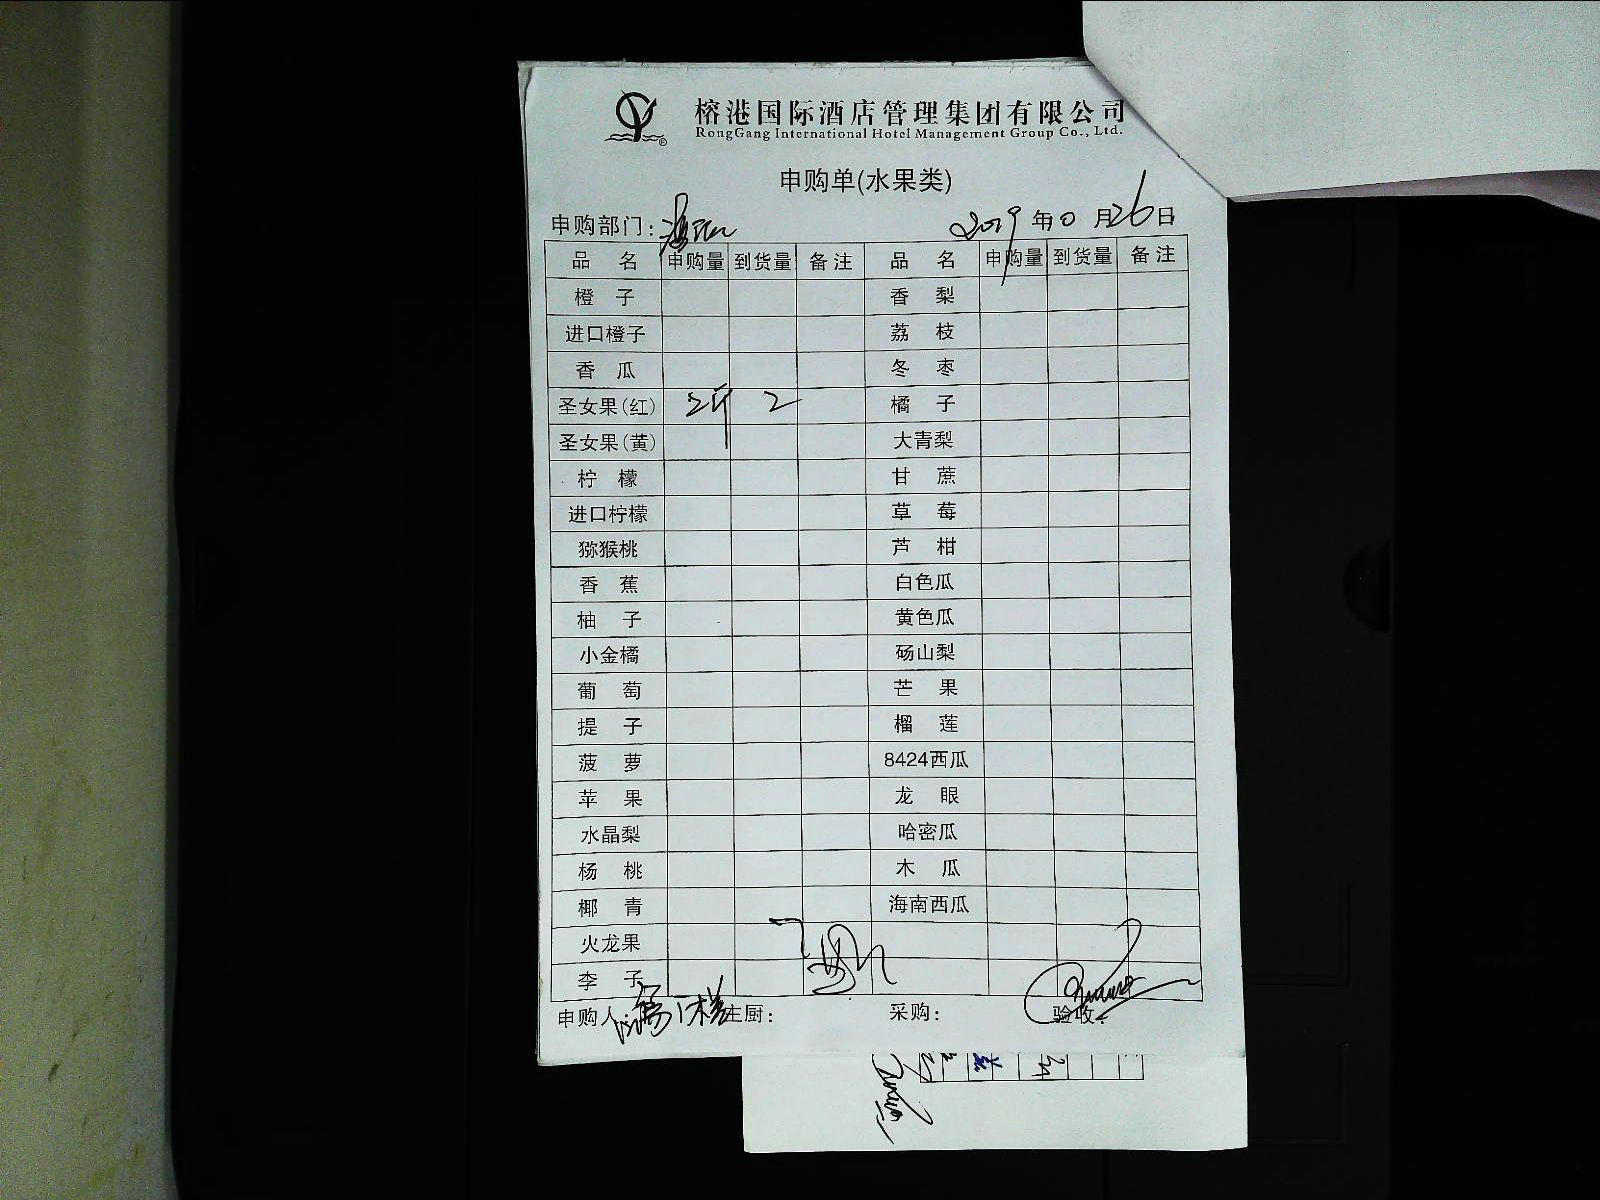 榕港国际酒店管理集团有限公司
RongGang International Hotel Management Group Co., Ltd.
申购单(水果类)
申购部门: 2019年 月26日
品名 申购量 到货量 备注 品名 申购量 到货量 备注
橙子 香梨
进口橙子 荔枝
香瓜 冬枣
圣女果(红) 2斤 2 橘子
圣女果(黄) 大青梨
柠檬 甘蔗
进口柠檬 草莓
猕猴桃 芦柑
香蕉 白色瓜
柚子 黄色瓜
小金橘 砀山梨
葡萄 芒果
提子 榴莲
菠萝 8424西瓜
苹果 龙眼
水晶梨 哈密瓜
杨桃 木瓜
椰青 海南西瓜
火龙果
李子
申购人: 主厨: 采购: 验收: